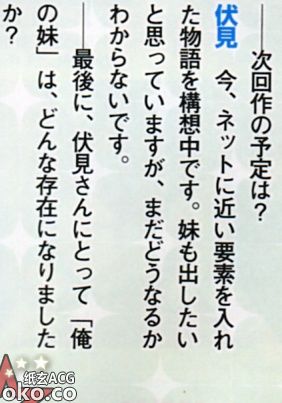 ――次回作の予定は？
伏見　今、ネットに近い要素を入れ
た物語を構想中です。妹も出したい
と思っていますが、まだどうなるか
わからないです。
――最後に、伏見さんにとって「俺
の妹」は、どんな存在になりました
か？
纸玄ACG
oko.co